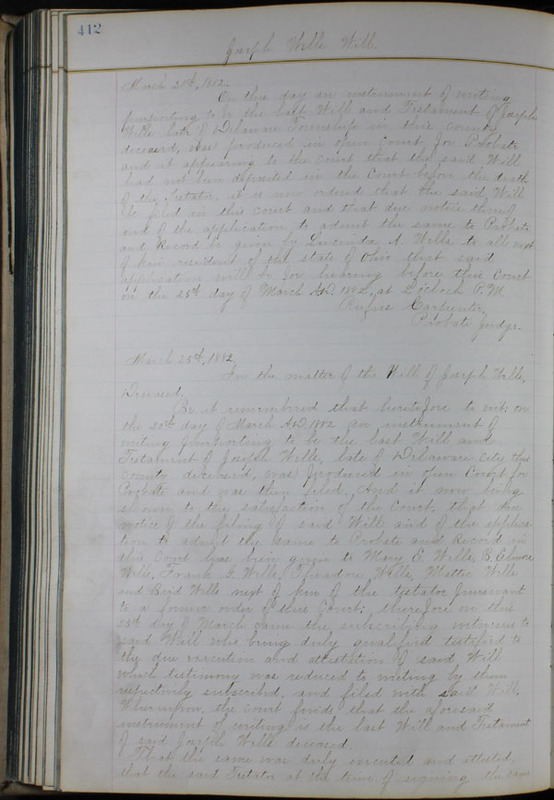 412
Joseph Wells Will.
March 20th, 1882.
On this day an instrument of writing
purporting to be the last Will and Testament of Joseph
Wells late of Delaware Township in this County
deceased, was produced in open Court for Probate
and it appearing to the Court that the said Will
had not been deposited in the Court before the death
of the Testator, it is now ordered that the said Will
be filed in this Court and that due notice thereof
and of the application to admit the same to Probate
and Record be given by Lucinda A. Wells to all next
of kin resident of the State of Ohio that said
application will be for hearing before this Court
on the 25th day of March A.D. 1882, at 2 o'clock P.M.
Rufus Carpenter,
Probate Judge.
March 25th, 1882,
In the matter of the Will of Joseph Wells,
Deceased.
Be it remembered that heretofore to wit, on
the 20th day of March A.D. 1882 an instrument of
writing purporting to be the last Will and
Testament of Joseph Wells, late of Delaware City this
County deceased, was produced in open Court for
Probate and was then filed. And it now being
shown to the satisfaction of the Court, that due
notice of the filing of said Will and of the applica-
tion to admit the same to Probate and Record in
this Court has been given to Mary E. Wells, B. Elmore
Wells, Frank G. Wells, Theadore Wells, Mattie Wells
and Bird Wells next of kin of the testator pursuant
to a former order of this Court; therefore on this
25th day of March came the subscribing witnesses to
said Will who being duly qualified testified to
the due execution and attestation of said Will
which testimony was reduced to writing by them
respectively subscribed, and filed with said Will.
Whereupon, the Court finds that the aforesaid
instrument of writing is the last Will and Testament
of said Joseph Wells deceased.
That the same was duly executed and attested,
that the said Testator at the time of signing the same